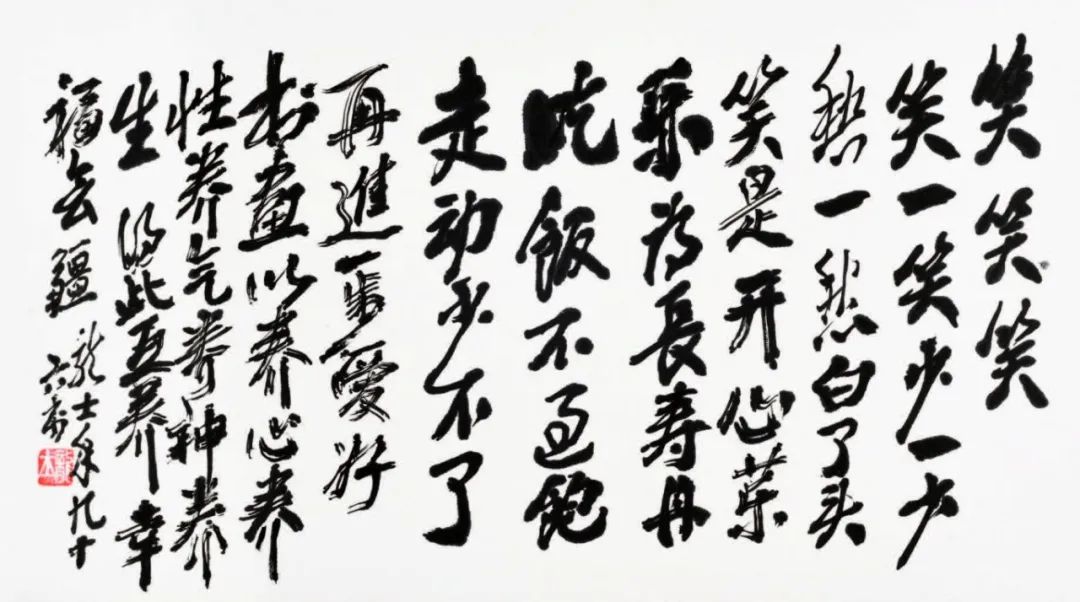 笑笑笑
笑一笑少一少
愁一愁白了头
笑是开心药
乐为長寿丹
吃飯不过飽
走动少不了
再進一步愛好
书畫以养心养
性养气养神养
生得此五养幸
福无疆
龙士年九十
六书